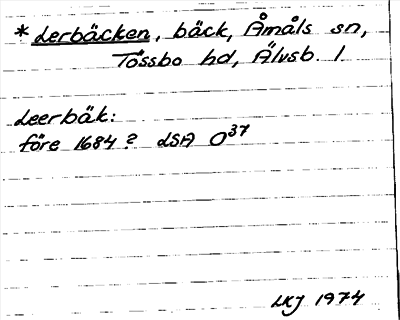 * Lerbäcken, bäck, Åmåls sn,
Tössbo hd, Älvsb. l.
Leerbäk:
före 1684? LSA O37
LKJ 1974